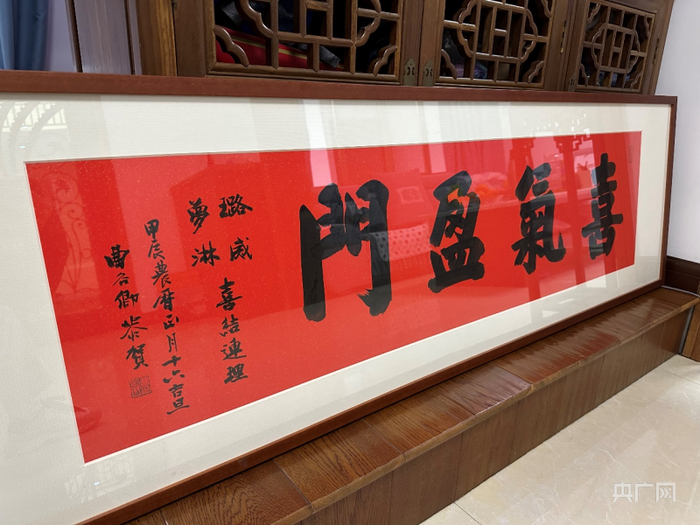 喜氣盈門
璐威 喜結連理
夢淋
甲辰農曆正月十六吉旦
曲谷卿恭賀
央广网